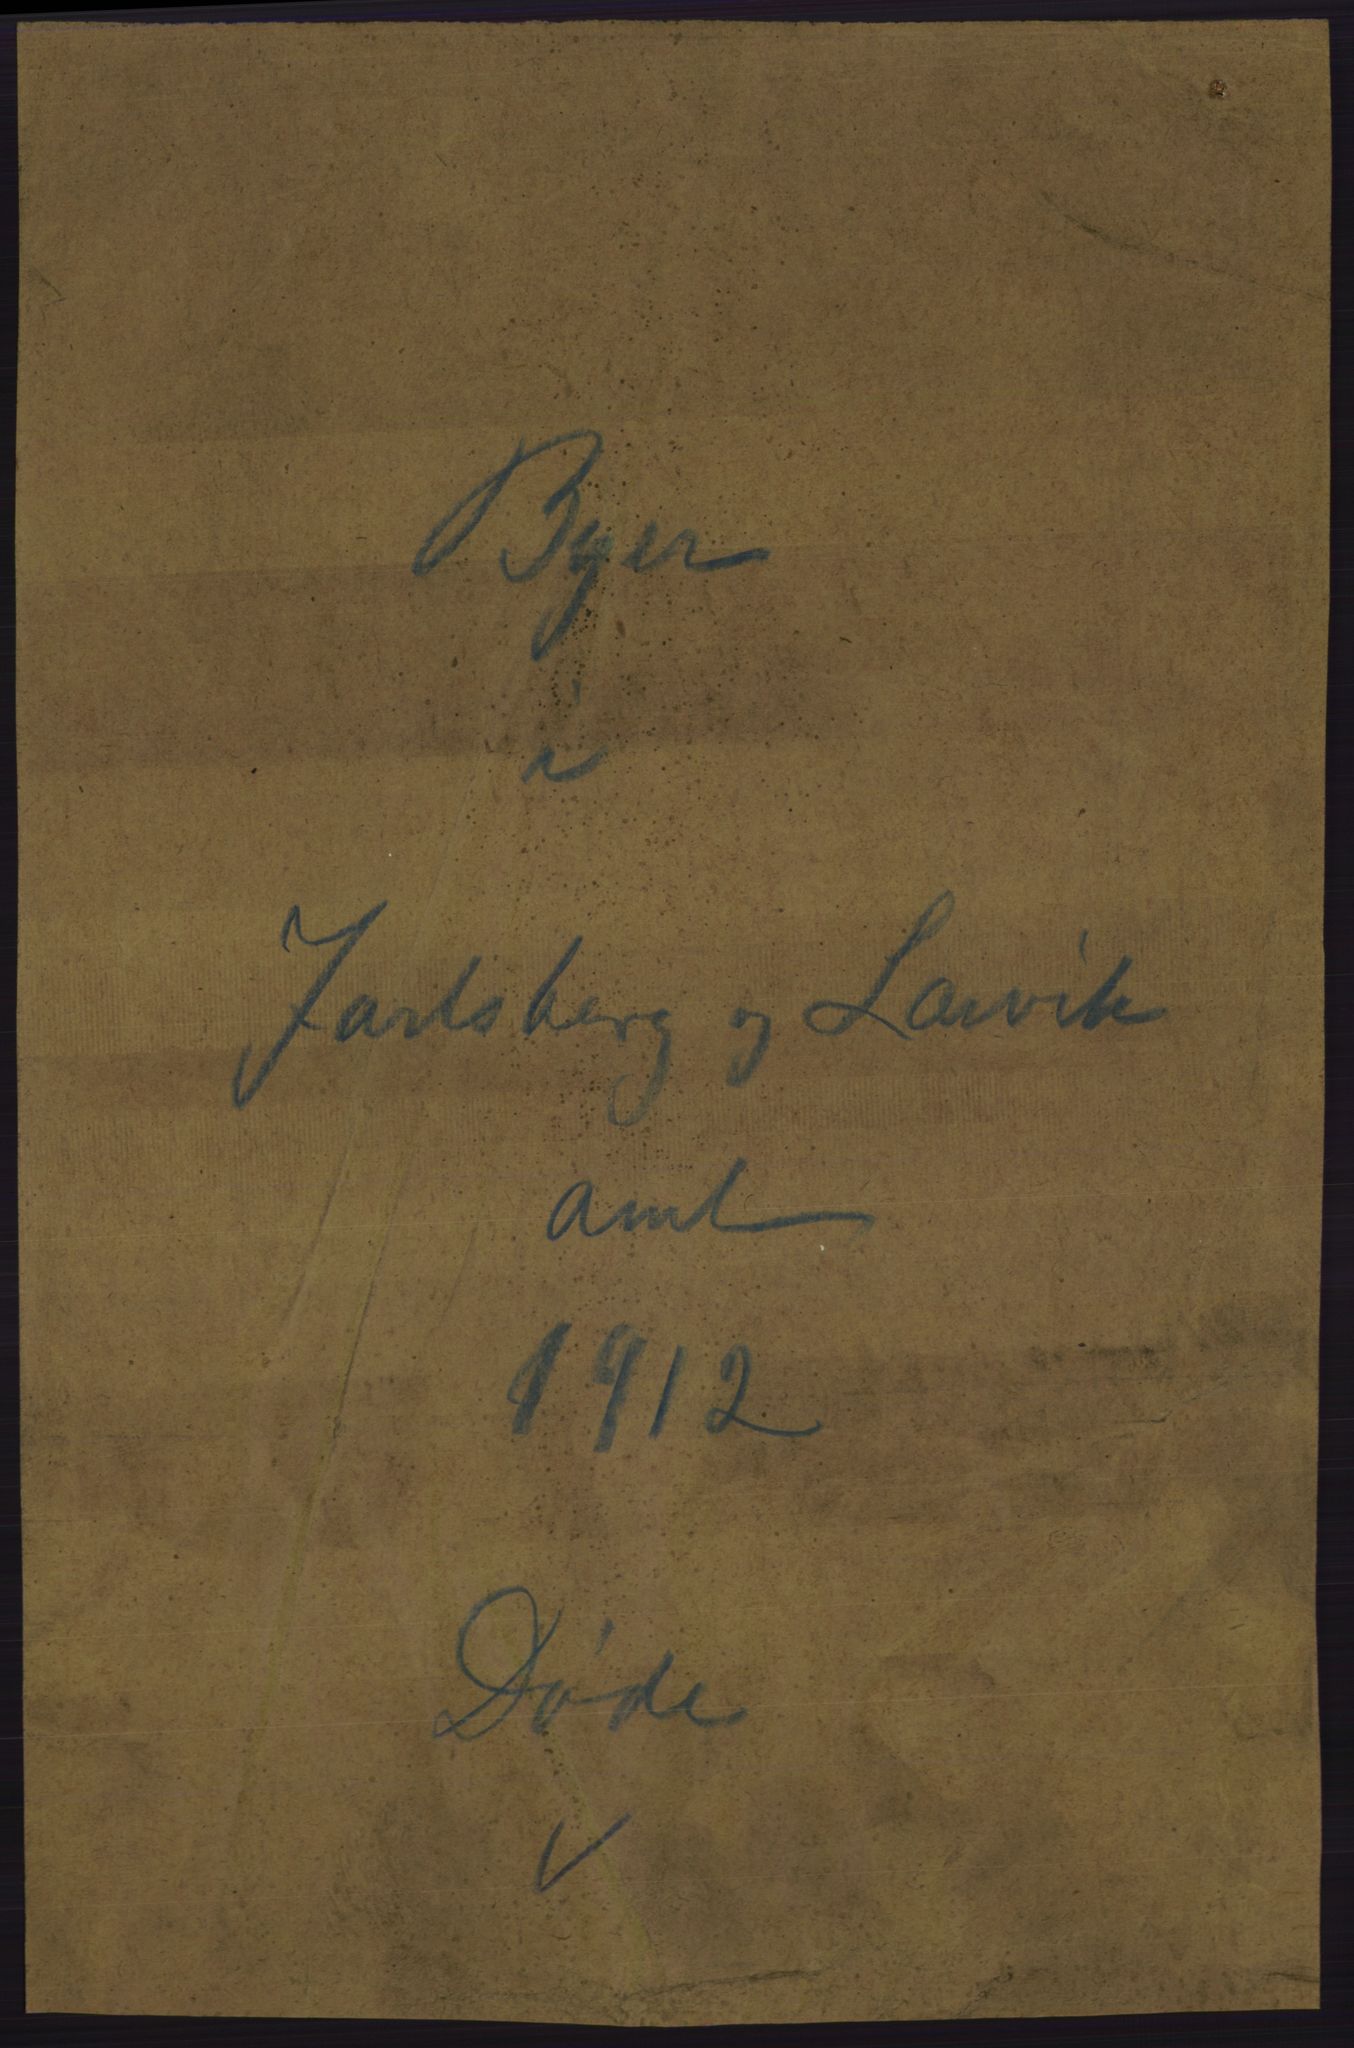 Byer
i
Jarlsberg og Larvik
amt
1912
Døde